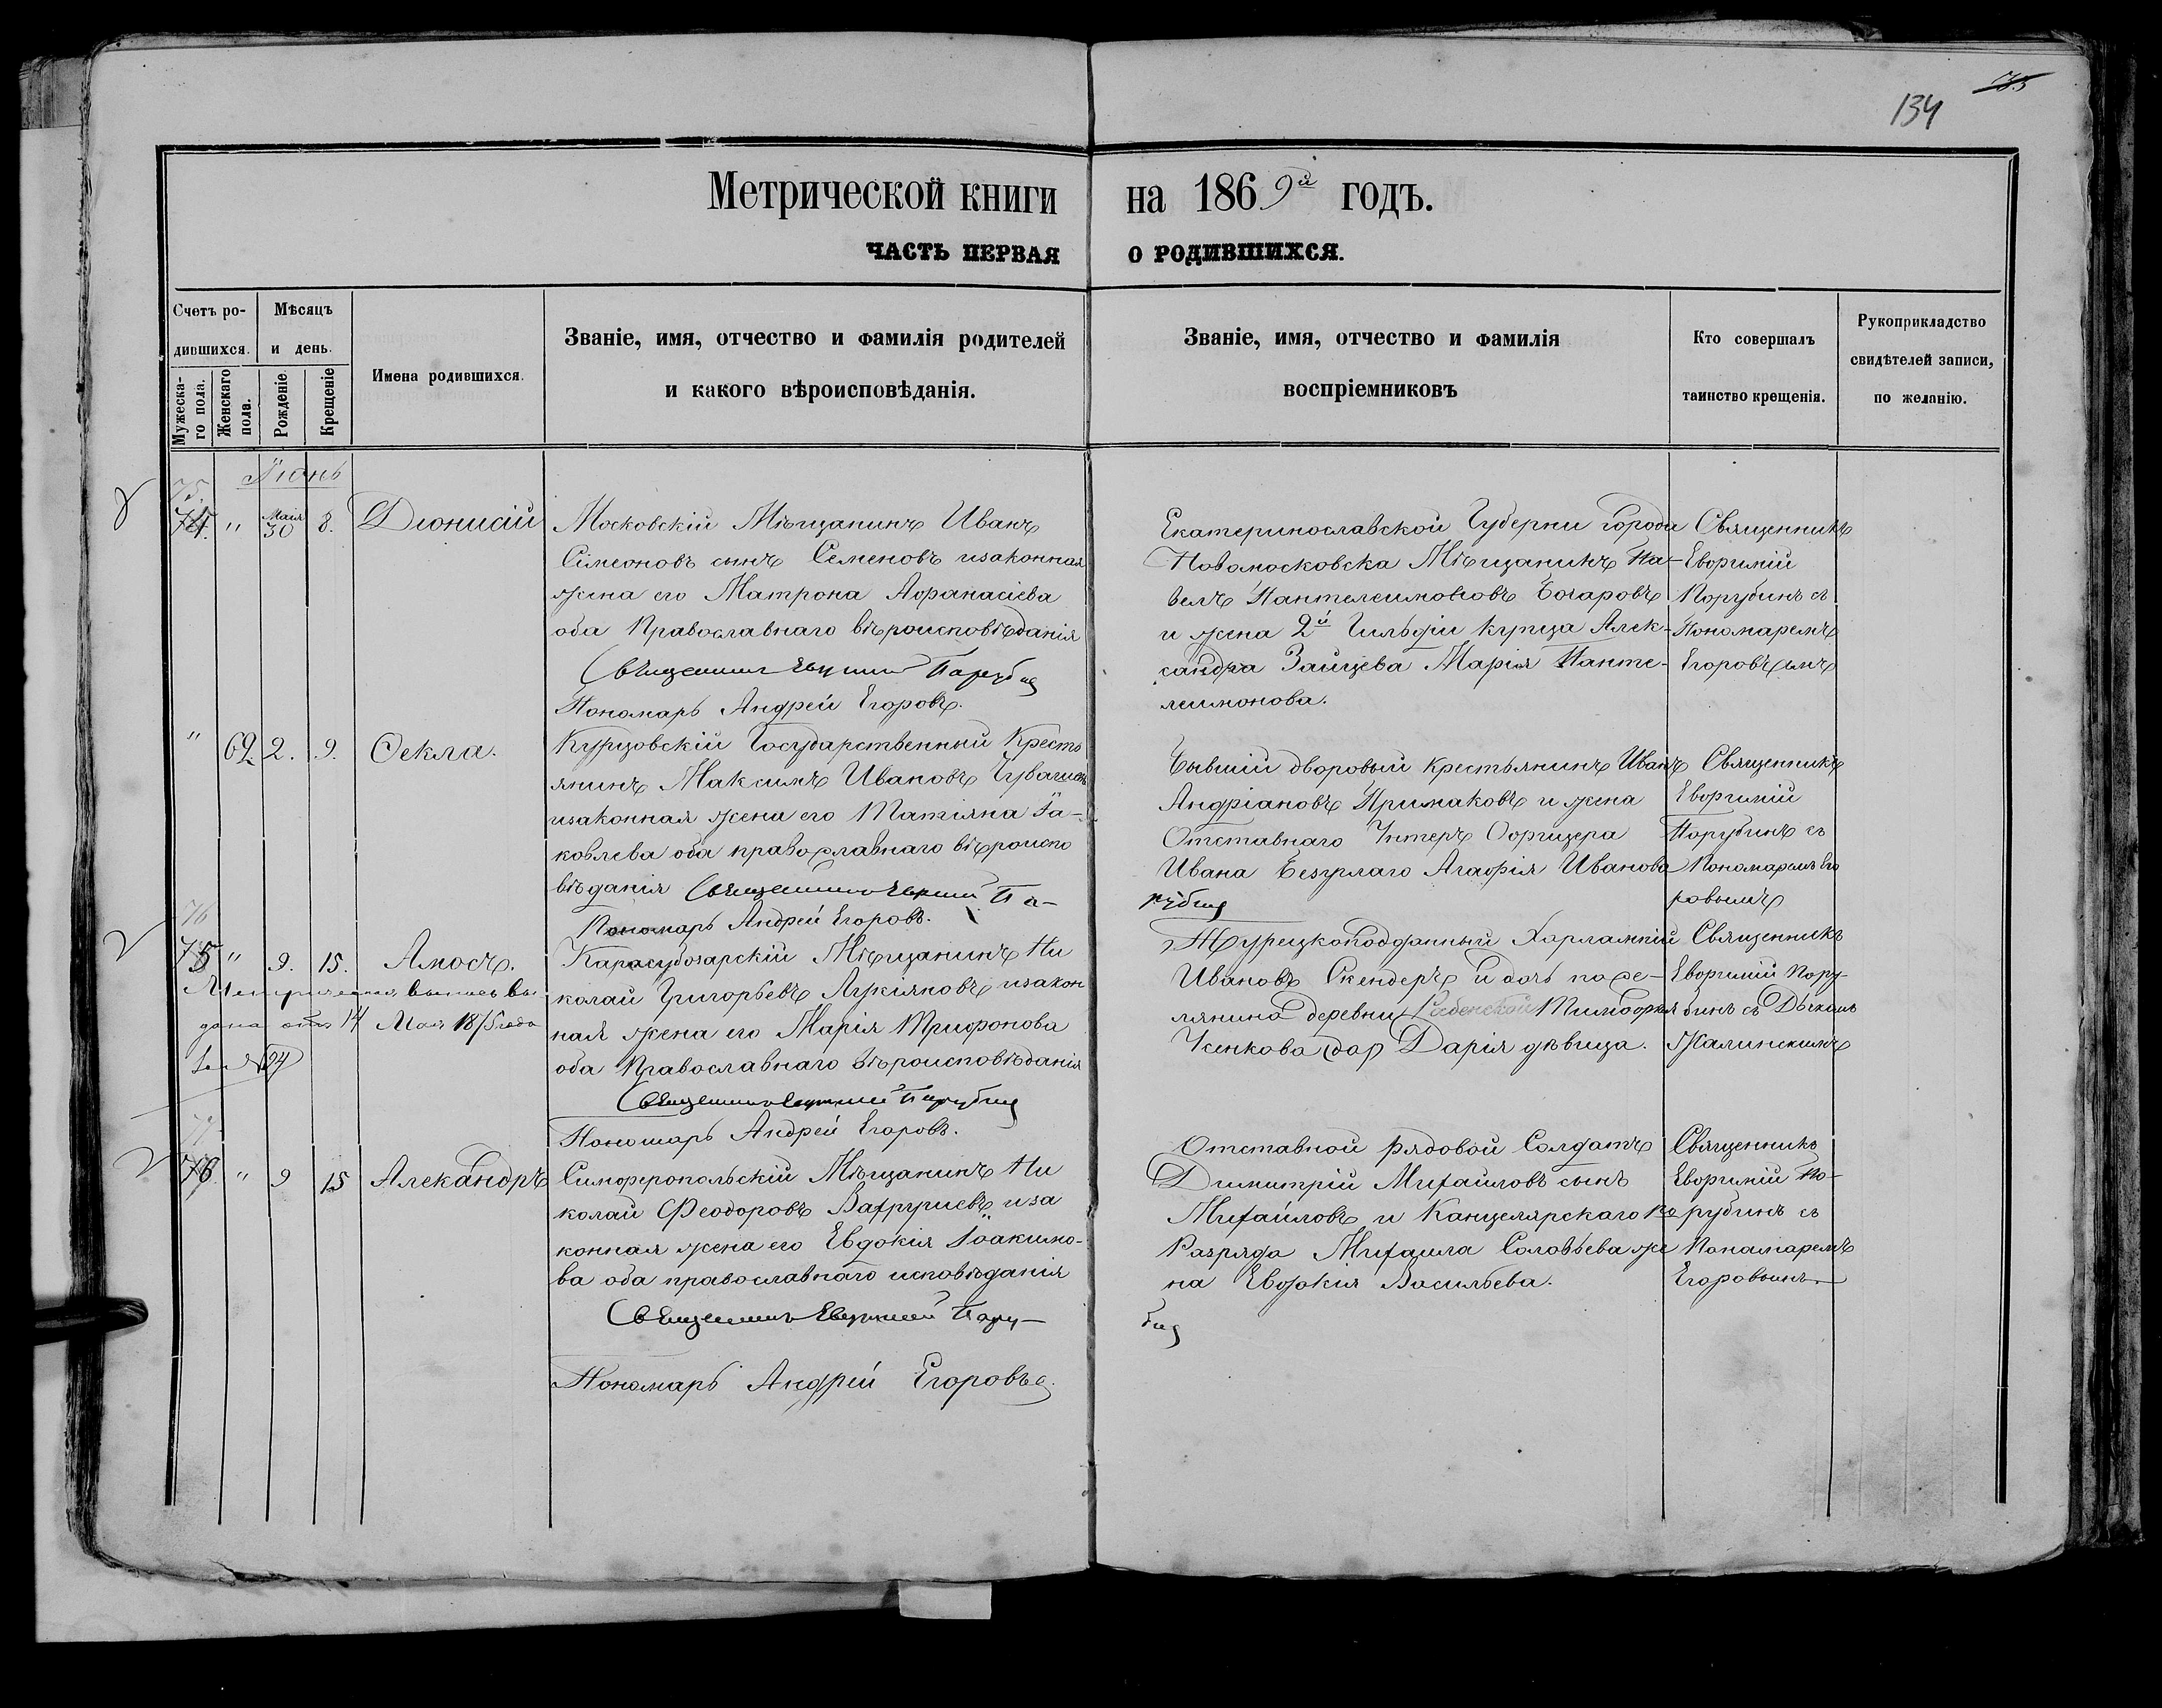 134
Метрической книги на 1869й годъ.
ЧАСТЬ ПЕРВАЯ О РОДИВШИХСЯ.
Счетъ родившихся.
Мужескаго пола.
Женскаго пола.
Мѣсяцъ и день.
Рожденіе
Крещеніе
Имена родившихся.
Званіе, имя, отчество и фамилія родителей
и какого вѣроисповѣданія.
Званіе, имя, отчество и фамилія
воспріемниковъ
Кто совершалъ
таинство крещенія.
Рукоприкладство
свидѣтелей записи,
по желанію.
Іюнь
75.
74. " Маія 30 8. Діонисій
Московскій Мѣщанинъ Иванъ
Сімеоновъ сынъ Семеновъ изаконная
жена его Матрона Аѳанасіева
оба Православнаго вѣроисповѣданія
Священникъ Порубин
Пономарь Андрей Егоровъ.
Екатеринославской Губерни города
Новомосковска Мѣщанинъ Па-
велъ Пантелеимоновъ Бочаровъ
и жена 2й Гильдіи купца Алек-
сандра Зайцева Марія Панте-
леимонова.
Священникъ
Евѳимій
Порубинъ съ
Пономаремъ
Егоровымъ
" 62 2. 9. Ѳекла.
Государственный Кресть
янинъ Максимъ Ивановъ
изаконная жена его Татіяна Іа-
ковлева оба православнаго вѣроиспо
вѣданія Священникъ По-
рубин
Пономарь Андрей Егоровъ.
Бывшій дворовый крестьянинъ Иванъ
Андріановъ Примаковъ и жена
Отставнаго Унтеръ Офицера
Ивана Безуглаго Агафія Иванова
Священникъ
Евѳимій
Порубинъ съ
Пономаремъ Его
ровымъ
76
75 " 9. 15. Амосъ.
Метрическая выпись вы
дана отъ 14 Мая 1875 года
за № 24
Карасубазарскій Мѣщанинъ Ни
колай Григорьевъ изакон
ная жена его Марія Трифонова
оба Православнаго вѣроисповѣданія
Священникъ Порубин
Пономарь Андрей Егоровъ.
Турецкоподданный Харлампій
Ивановъ Скендеръ и дочь посе-
лянина деревни Тимофея
Усенкова Дарія дѣвица.
Священникъ
Евѳимій Пору-
бинъ съ Дьякомъ
Жалинскимъ
77
76 " 9 15 Александръ
Симферопольскій Мѣщанинъ Ни
колай Феодоровъ изa
конная жена его Евдокія Іоакимо-
ва оба православнаго исповѣданія
Священникъ Пору-
бин
Пономарь Андрей Егоровъ.
Отставной рядовой Солдатъ
Димитрій Михайловъ сынъ
Михайловъ и Канцелярскаго
Разряда Михаила Соловьева же
на Евдокія Васильева.
Священникъ
Евѳимій По-
рубинъ съ
Понамаремъ
Егоровымъ